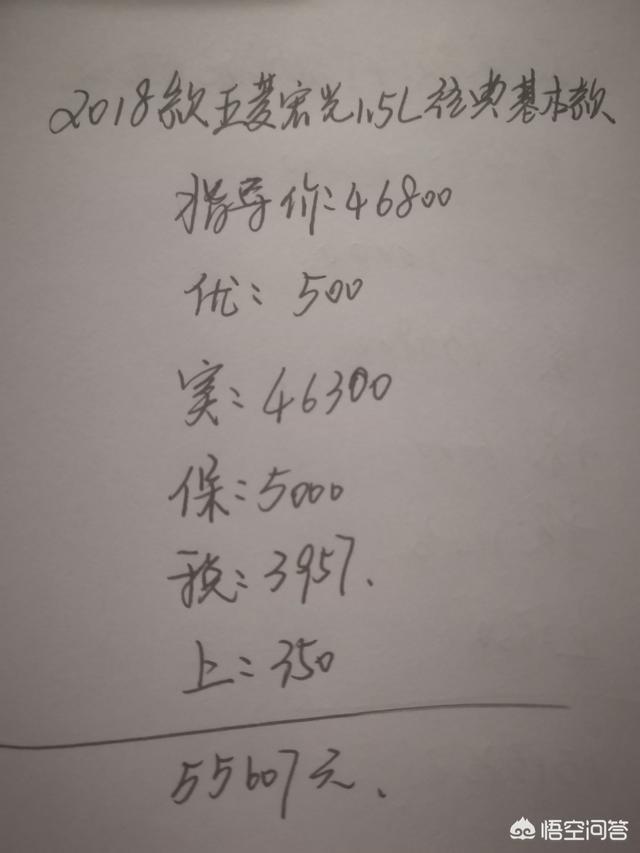 2018款五菱宏光1.5L经典基本款
指导价:46800
优:500
实:46300
保:5000
税:3957.
上:350
55607元.
悟空问答